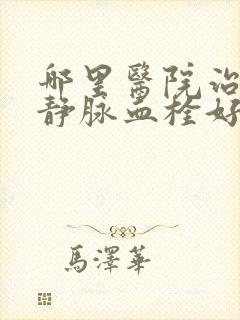 哪里醫院治
静脉血栓好
馬澤華